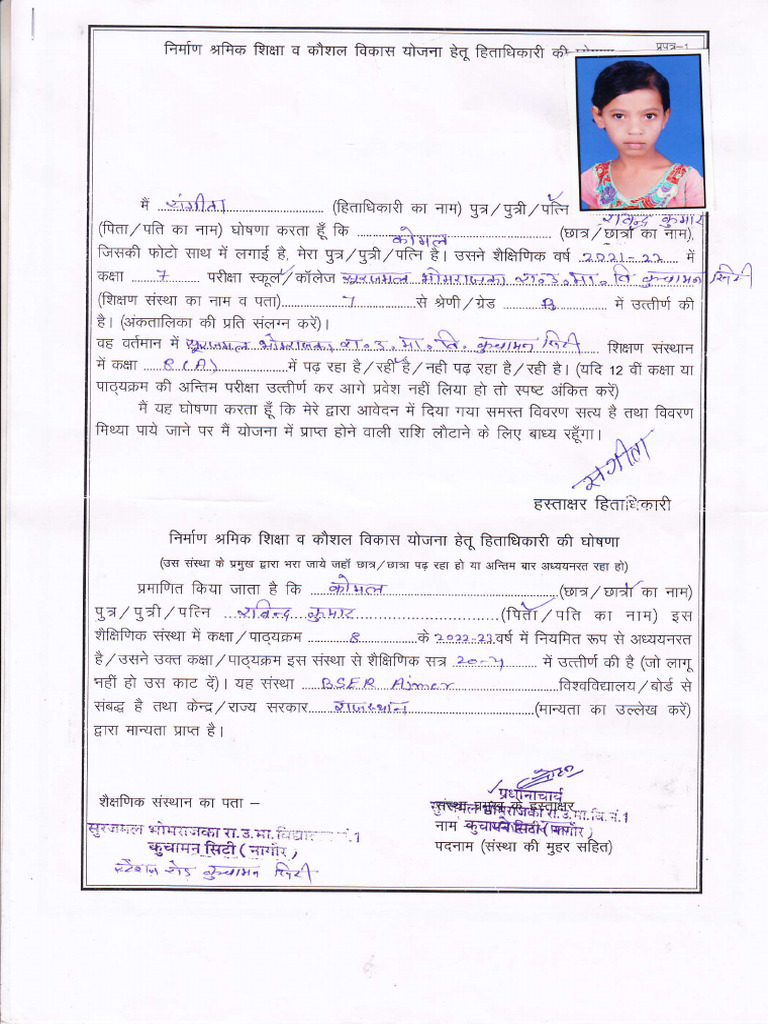 प्रपत्र-1
निर्माण श्रमिक शिक्षा व कौशल विकास योजना हेतू हिताधिकारी की
मैं संगीता (हिताधिकारी का नाम) पुत्र/पुत्री/पत्नि रविन्द्र कुमार
(पिता/पति का नाम) घोषणा करता हूँ कि कोमल (छात्र/छात्रा का नाम),
जिसकी फोटो साथ में लगाई है, मेरा पुत्र/पुत्री/पत्नि है। उसने शैक्षिणिक वर्ष 2021-22 में
कक्षा 7 परीक्षा स्कूल/कॉलेज सूरजमल भोमराजका रा.उ.मा.वि कुचामन सिटी
(शिक्षण संस्था का नाम व पता) 7 से श्रेणी/ग्रेड B में उत्तीर्ण की
है। (अंकतालिका की प्रति संलग्न करें)।
वह वर्तमान में सूरजमल भोमराजका रा.उ.मा.वि. कुचामन सिटी शिक्षण संस्थान
में कक्षा 8(A) में पढ़ रहा है/रहीं है/नही पढ़ रहा है/रही है। (यदि 12 वीं कक्षा या
पाठ्यक्रम की अन्तिम परीक्षा उत्तीर्ण कर आगे प्रवेश नहीं लिया हो तो स्पष्ट अंकित करें)
मैं यह घोषणा करता हूँ कि मेरे द्वारा आवेदन में दिया गया समस्त विवरण सत्य है तथा विवरण
मिथ्या पाये जाने पर मैं योजना में प्राप्त होने वाली राशि लौटाने के लिए बाध्य रहूँगा।
संगीता
हस्ताक्षर हिताधिकारी
निर्माण श्रमिक शिक्षा व कौशल विकास योजना हेतू हिताधिकारी की घोषणा
(उस संस्था के प्रमुख द्वारा भरा जाये जहॉं छात्र/छात्रा पढ़ रहा हो या अन्तिम बार अध्ययनरत रहा हो)
प्रमाणित किया जाता है कि कोमल (छात्र/छात्रा का नाम)
पुत्र/पुत्री/पत्नि रविन्द्र कुमार (पिता/पति का नाम) इस
शैक्षिणिक संस्था में कक्षा/पाठ्यक्रम 8 के 2022-23 वर्ष में नियमित रूप से अध्ययनरत
है/उसने उक्त कक्षा/पाठ्यक्रम इस संस्था से शैक्षिणिक सत्र में उत्तीर्ण की है (जो लागू
नहीं हो उस काट दें)। यह संस्था BSER Ajmer विश्वविद्यालय/बोर्ड से
संबद्ध है तथा केन्द्र/राज्य सरकार राजस्थान (मान्यता का उल्लेख करें)
द्वारा मान्यता प्राप्त है।
शैक्षणिक संस्थान का पता –
सुरजमल भोमराजका रा.उ.मा.विद्यालय नं.1
कुचामन सिटी (नागौर)
स्टेशन रोड कुचामन सिटी
प्रधानाचार्य
संस्था प्रमुख के हस्ताक्षर
सुरजमल भोमराजका रा.उ.मा.वि.नं.1
नाम कुचामन सिटी (नागौर)
पदनाम (संस्था की मुहर सहित)